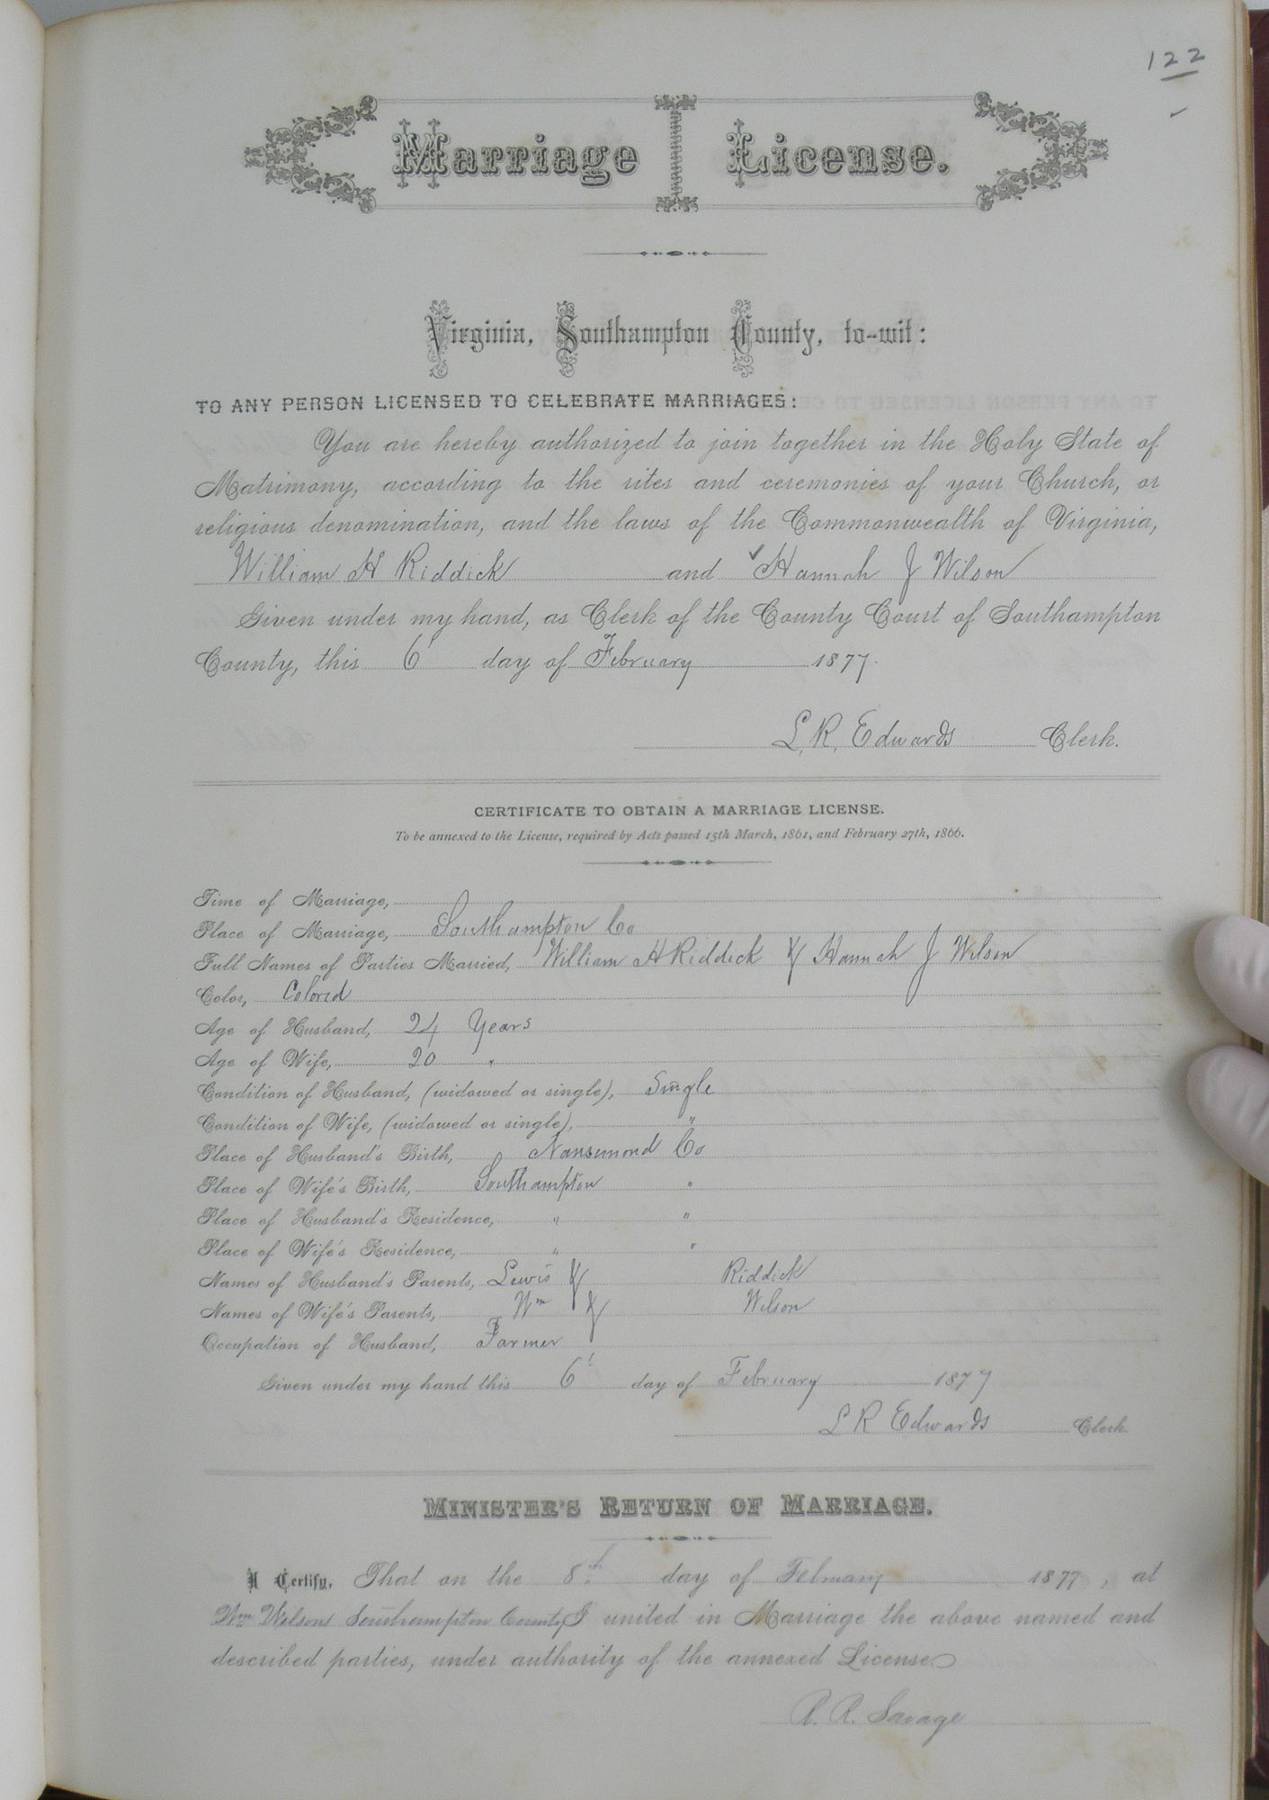 122
Marriage License.
Virginia, Southampton County, to-wit:
TO ANY PERSON LICENSED TO CELEBRATE MARRIAGES:
You are hereby authorized to join together in the Holy State of
Matrimony, according to the rites and ceremonies of your Church, or
religious denomination, and the laws of the Commonwealth of Virginia,
William H Riddick and Hannah J Wilson
Given under my hand, as Clerk of the County Court of Southampton
County, this 6 day of February 1877.
L. R. Edwards Clerk.
CERTIFICATE TO OBTAIN A MARRIAGE LICENSE.
To be annexed to the License, required by Acts passed 15th March, 1861, and February 27th, 1866.
Time of Marriage,
Place of Marriage, Southampton Co
Full Names of Parties Married, William H Riddick & Hannah J Wilson
Color, Colored
Age of Husband, 24 Years
Age of Wife, 20 "
Condition of Husband, (widowed or single), Single
Condition of Wife, (widowed or single), "
Place of Husband's Birth, Nansemond Co
Place of Wife's Birth, Southampton "
Place of Husband's Residence, " "
Place of Wife's Residence, " "
Names of Husband's Parents, Lewis & Riddick
Names of Wife's Parents, Wm & Wilson
Occupation of Husband, Farmer
Given under my hand this 6' day of February 1877
L R Edwards Clerk.
MINISTER'S RETURN OF MARRIAGE.
I Certify, That on the 8th day of February 1877, at
Wm Wilsons Southampton County I united in Marriage the above named and
described parties, under authority of the annexed License
R. R. Savage